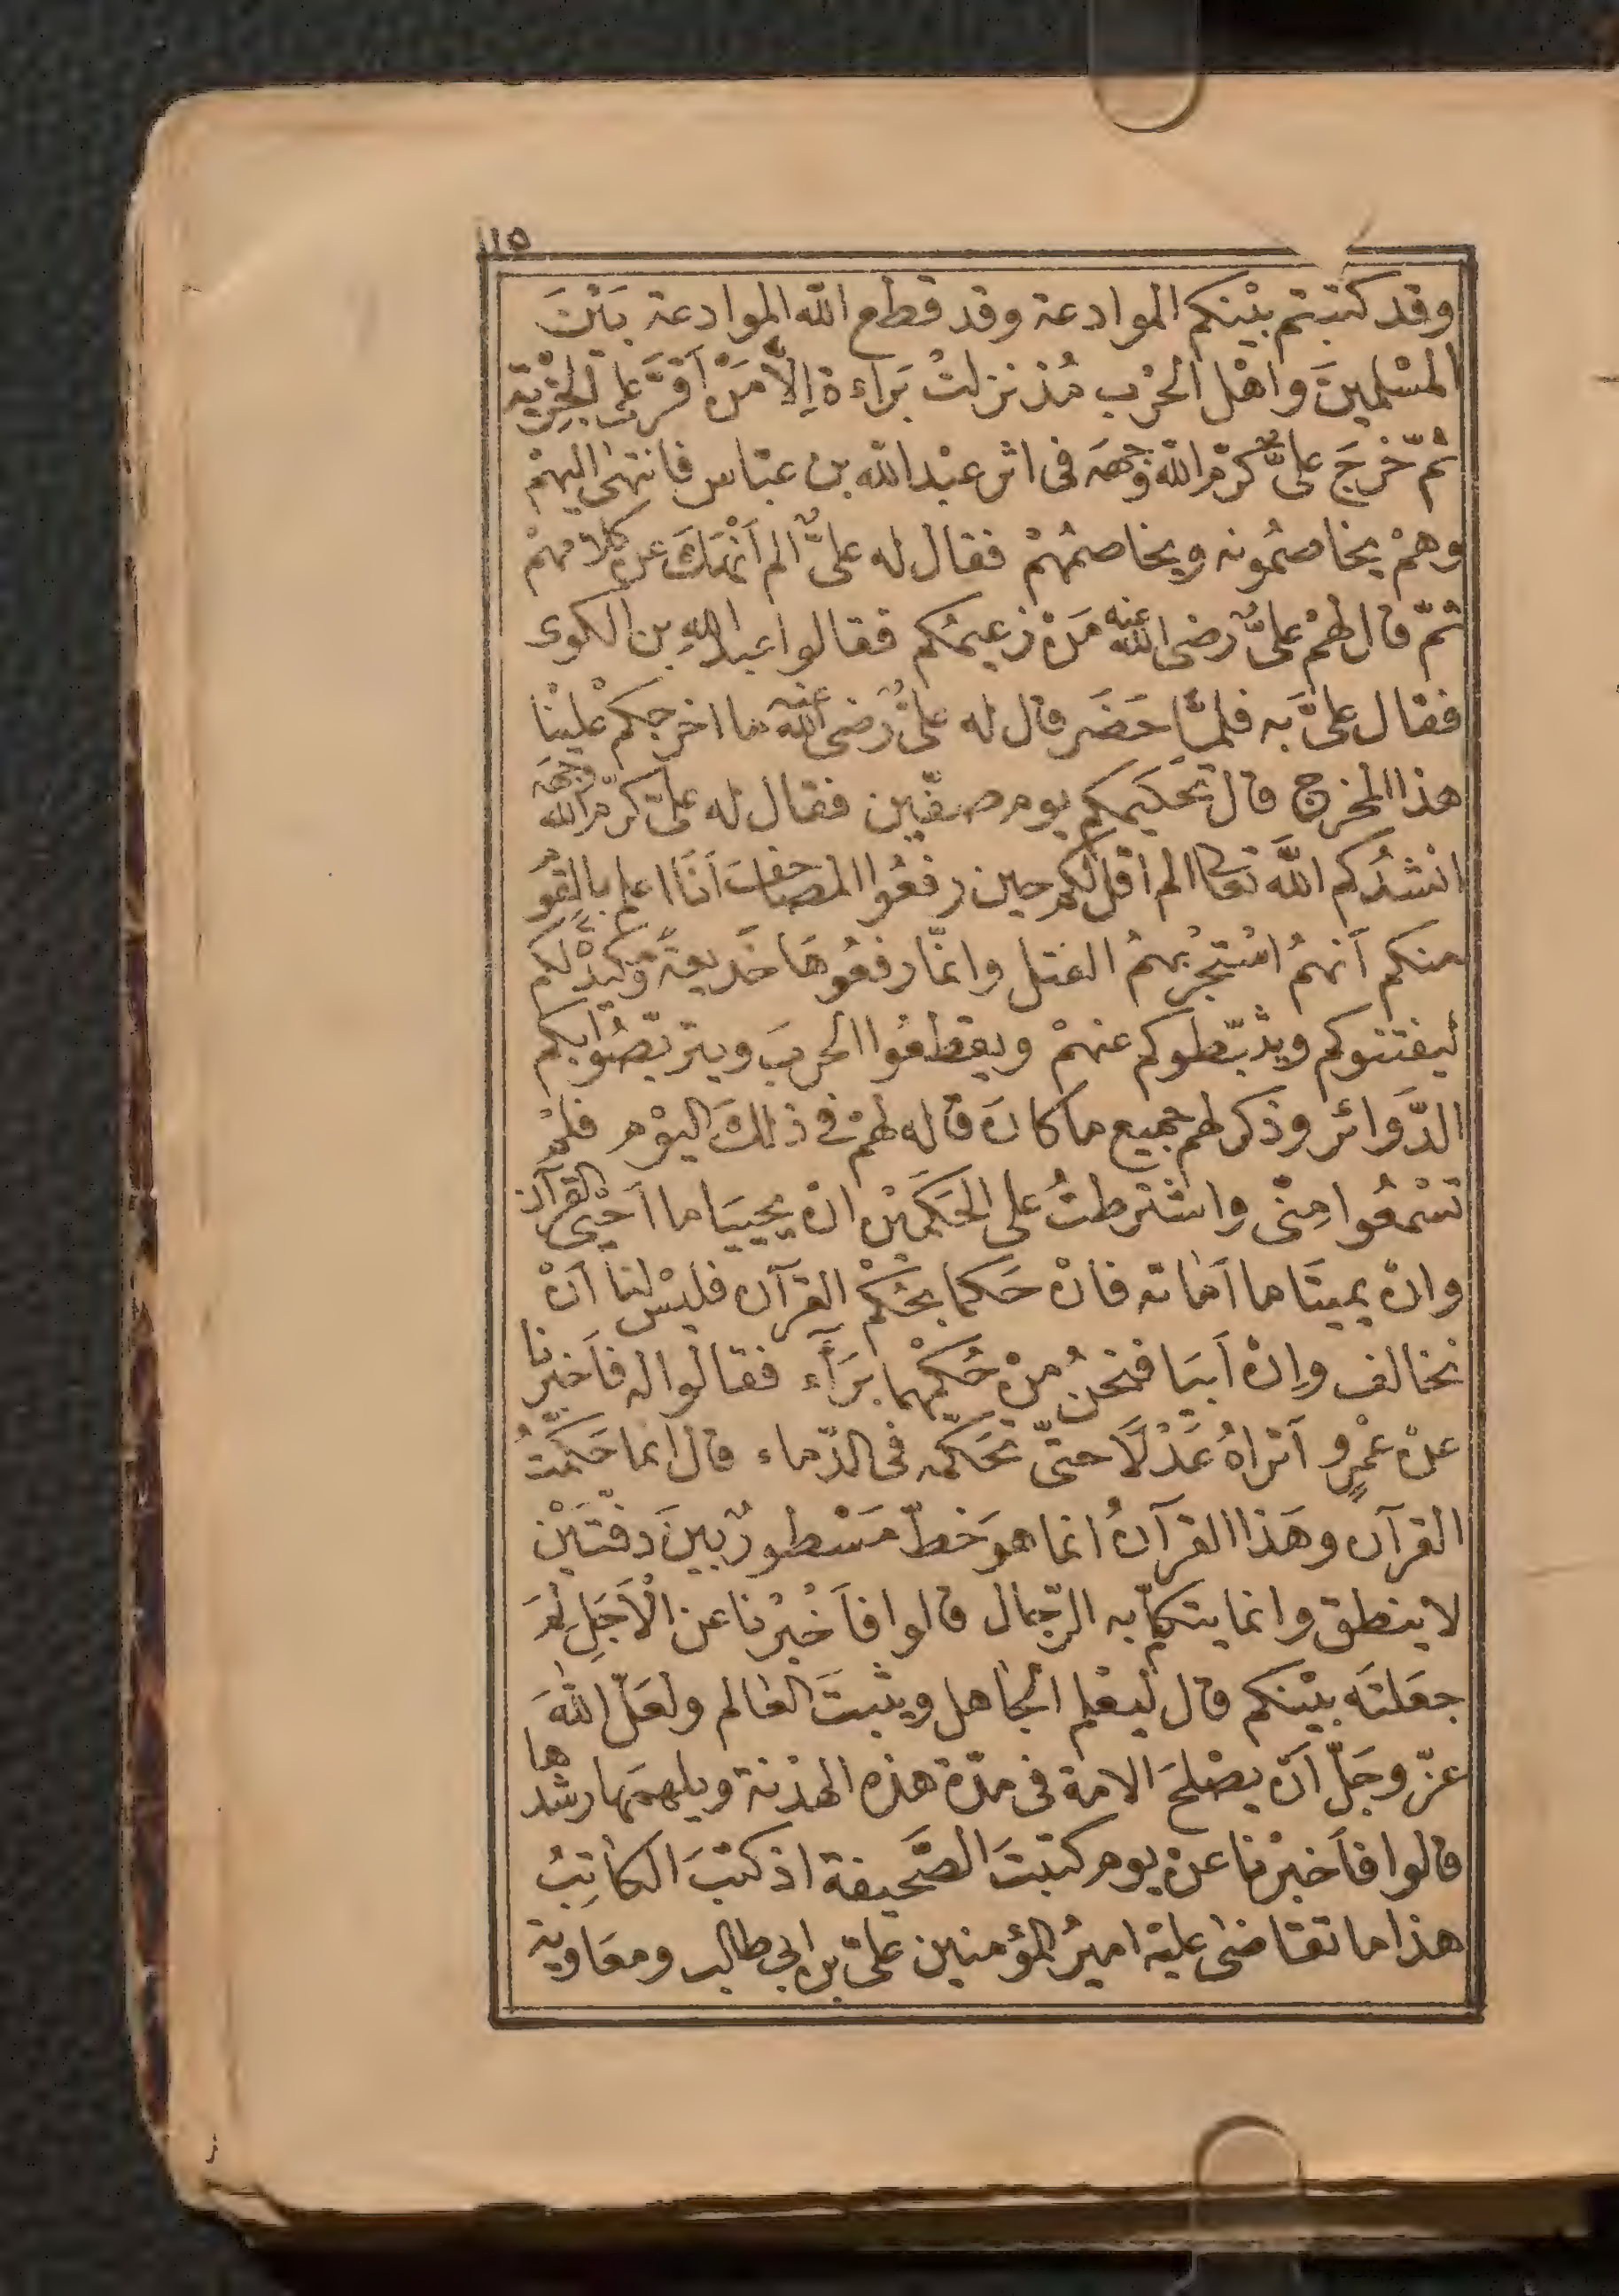 ١١٥
وقد كتبتم بيْنكم الموادعة وقد قطع الله الموادعة بَيْنَ
المسْلمينَ واهْل الحرْب مُذ نزلتْ بَراءة اِلّا مَنْ اَقرَّ على الجِزْية
ثمّ خرَجَ علىٌّ كرّم الله وَجهَه فى اثر عبْد الله بن عبّاس فانتهى اليهمْ
وهمْ يخاصمُونه ويخاصمُهمْ فقال له علىٌّ الم اَنْهَكَ عن كلامهمْ
ثمّ قال لهمْ علىٌّ رضى الله عنه مَنْ زعيمُكم فقالوا عبد الله بن الكوى
فقال علىَّ به فلمّا حَضَر قال له علىٌّ رضى الله عنه ما اخرجكمْ عليْنا
هذا المخرج قال تحَكيمكم يوم صفّين فقال له علىّ كرّم الله وجهه
انشدُكم اللهَ تعالى الم اقل لكم حين رفعُوا المصاحفَ اَنَا اعلم بالقوْم
منكم اَنهمُ اسْتجرْبهمُ القتل وانمّا رفعُوهَا خَديعةً وَكيدًا لكم
ليفتنوكم ويثبّطوكم عنهمْ ويقطعُوا الحربَ ويتربّصُوا بكم
الدَّوائر وذكر لهم جميع ما كانَ قاله لهمْ فى ذلكَ اليوْم فلمْ
تسْمعُوا مِنّى واشترطتُ على الحَكَميْن انْ يحْييَا ما اَحْيى القرآن
وانْ يميتَا ما اَماته فانْ حَكما بحُكْم القرآن فليْس لنا اَنْ
نخالف وانْ اَبيَا فنحنُ منْ حُكْمهما بَرَآء فقالوا له فاَخبرنا
عنْ عَمْرٍو اَتراهُ عَدْلًا حتىّ تحَكّمه فى الدّماء قال انما حَكّمتُ
القرآن وهَذا القرآنُ انما هوَ خطّ مَسْطورٌ بينَ دفّتيْن
لا ينطق وانما يتكلّم به الرّجال قالوا فاَخْبرْنا عن الاَجَلِ لِمَ
جعَلتَه بيْنكم قال ليعْلم الجاهل ويثبتَ العالم ولعَلّ اللهَ
عزّ وجَلّ اَنْ يصْلحَ الامة فى مدّة هذه الهدْنة ويلهمَها رشدها
قالوا فاَخبرْنا عنْ يوم كتبتَ الصَّحيفة اذ كتبَ الكاتِبُ
هذا ما تقاضى عليْه اميرُ المؤمنين علىّ بن ابى طالب ومعَاوية